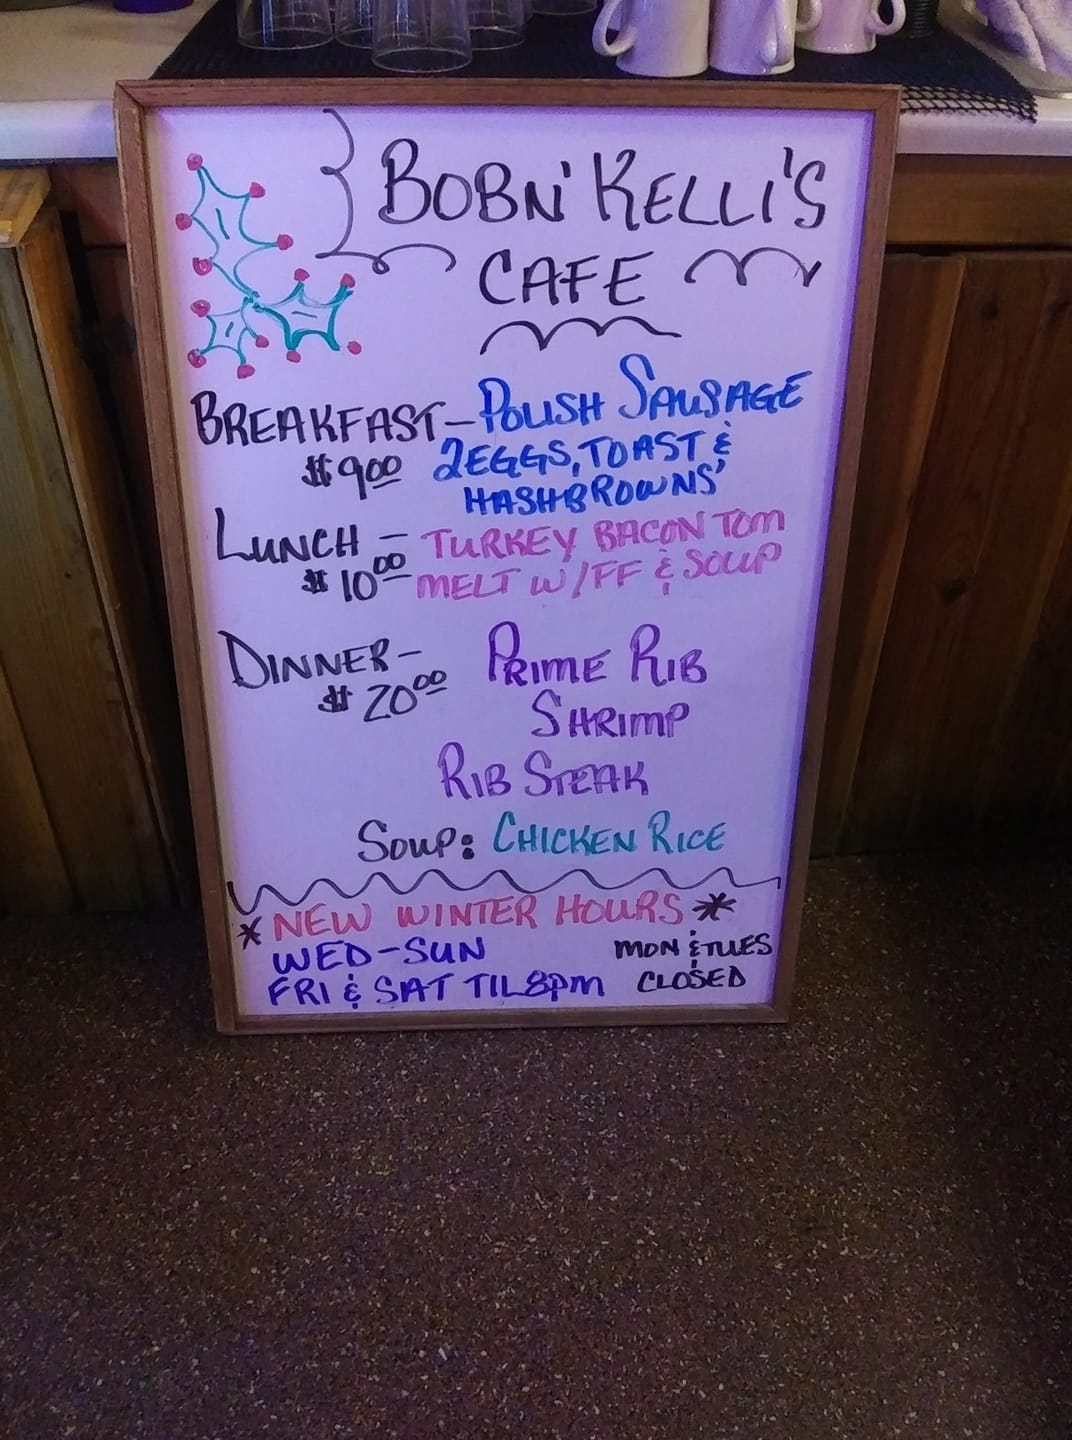 BOBN' KELLI'S
CAFE
BREAKFAST- POLISH SAUSAGE
$9.00 2EGGS, TOAST &
HASHBROWNS'
LUNCH - TURKEY BACON TOM
$10.00 MELT W/FF & SOUP
DINNER- PRIME RIB
$20.00 SHRIMP
RIB STEAK
SOUP: CHICKEN RICE
* NEW WINTER HOURS *
WED-SUN MON & TUES
FRI & SAT TIL 8pm CLOSED